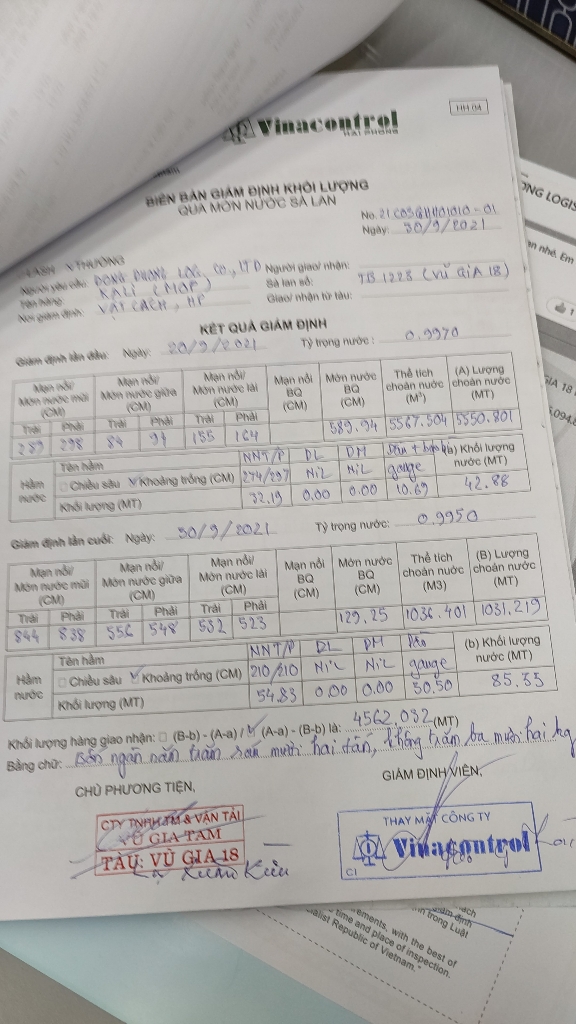 HH 04
Vinacontrol
HAI PHONG
BIÊN BẢN GIÁM ĐỊNH KHỐI LƯỢNG
QUA MỚN NƯỚC SÀ LAN
No.
Ngày: 30/9/2021
Người yêu cầu: DONG PHONG LOG. CO., LTD Người giao/ nhận:
KALI (MOP) Sà lan số: TB 1228 (VŨ GIA 18)
Nơi giám định: VAT CACH, HP Giao/ nhận từ tàu:
KẾT QUẢ GIÁM ĐỊNH
Giám định lần đầu: Ngày: 20/9/2021 Tỷ trọng nước: 0.9970
Mạn nổi/ Mớn nước mũi (CM) Mạn nổi/ Mớn nước giữa (CM) Mạn nổi/ Mớn nước lái (CM) Mạn nổi BQ (CM) Mớn nước BQ (CM) Thể tích choán nước (M³) (A) Lượng choán nước (MT)
Trái Phải Trái Phải Trái Phải
289 298 84 94 155 164 589.94 5567.504 5550.801
Hầm nước Tên hầm NNT/P DL DM (a) Khối lượng nước (MT)
Chiều sâu Khoảng trống (CM) 274/297 NiL NiL gauge
Khối lượng (MT) 32.19 0.00 0.00 10.69 42.88
Giám định lần cuối: Ngày: 30/9/2021 Tỷ trọng nước: 0.9950
Mạn nổi/ Mớn nước mũi (CM) Mạn nổi/ Mớn nước giữa (CM) Mạn nổi/ Mớn nước lái (CM) Mạn nổi BQ (CM) Mớn nước BQ (CM) Thể tích choán nước (M3) (B) Lượng choán nước (MT)
Trái Phải Trái Phải Trái Phải
844 838 556 548 532 523 129.25 1036.401 1031.219
Hầm nước Tên hầm NNT/P DL DM Dầu (b) Khối lượng nước (MT)
Chiều sâu Khoảng trống (CM) 210/210 NiL NiL gauge
Khối lượng (MT) 54.83 0.00 0.00 30.50 85.33
Khối lượng hàng giao nhận: (B-b) - (A-a) / (A-a) - (B-b) là: 4562.032 (MT)
Bằng chữ: Bốn ngàn năm trăm sáu mươi hai tấn, không trăm ba mươi hai kg
CHỦ PHƯƠNG TIỆN,
GIÁM ĐỊNH VIÊN,
CTY TNHH TM & VẬN TẢI
VŨ GIA TAM
TÀU: VŨ GIA 18
THAY MẶT CÔNG TY
Vinacontrol
C1
ONG LOGIS
nhé. Em
1
trong Luật
ements, with the best of
time and place of inspection.
ialist Republic of Vietnam."